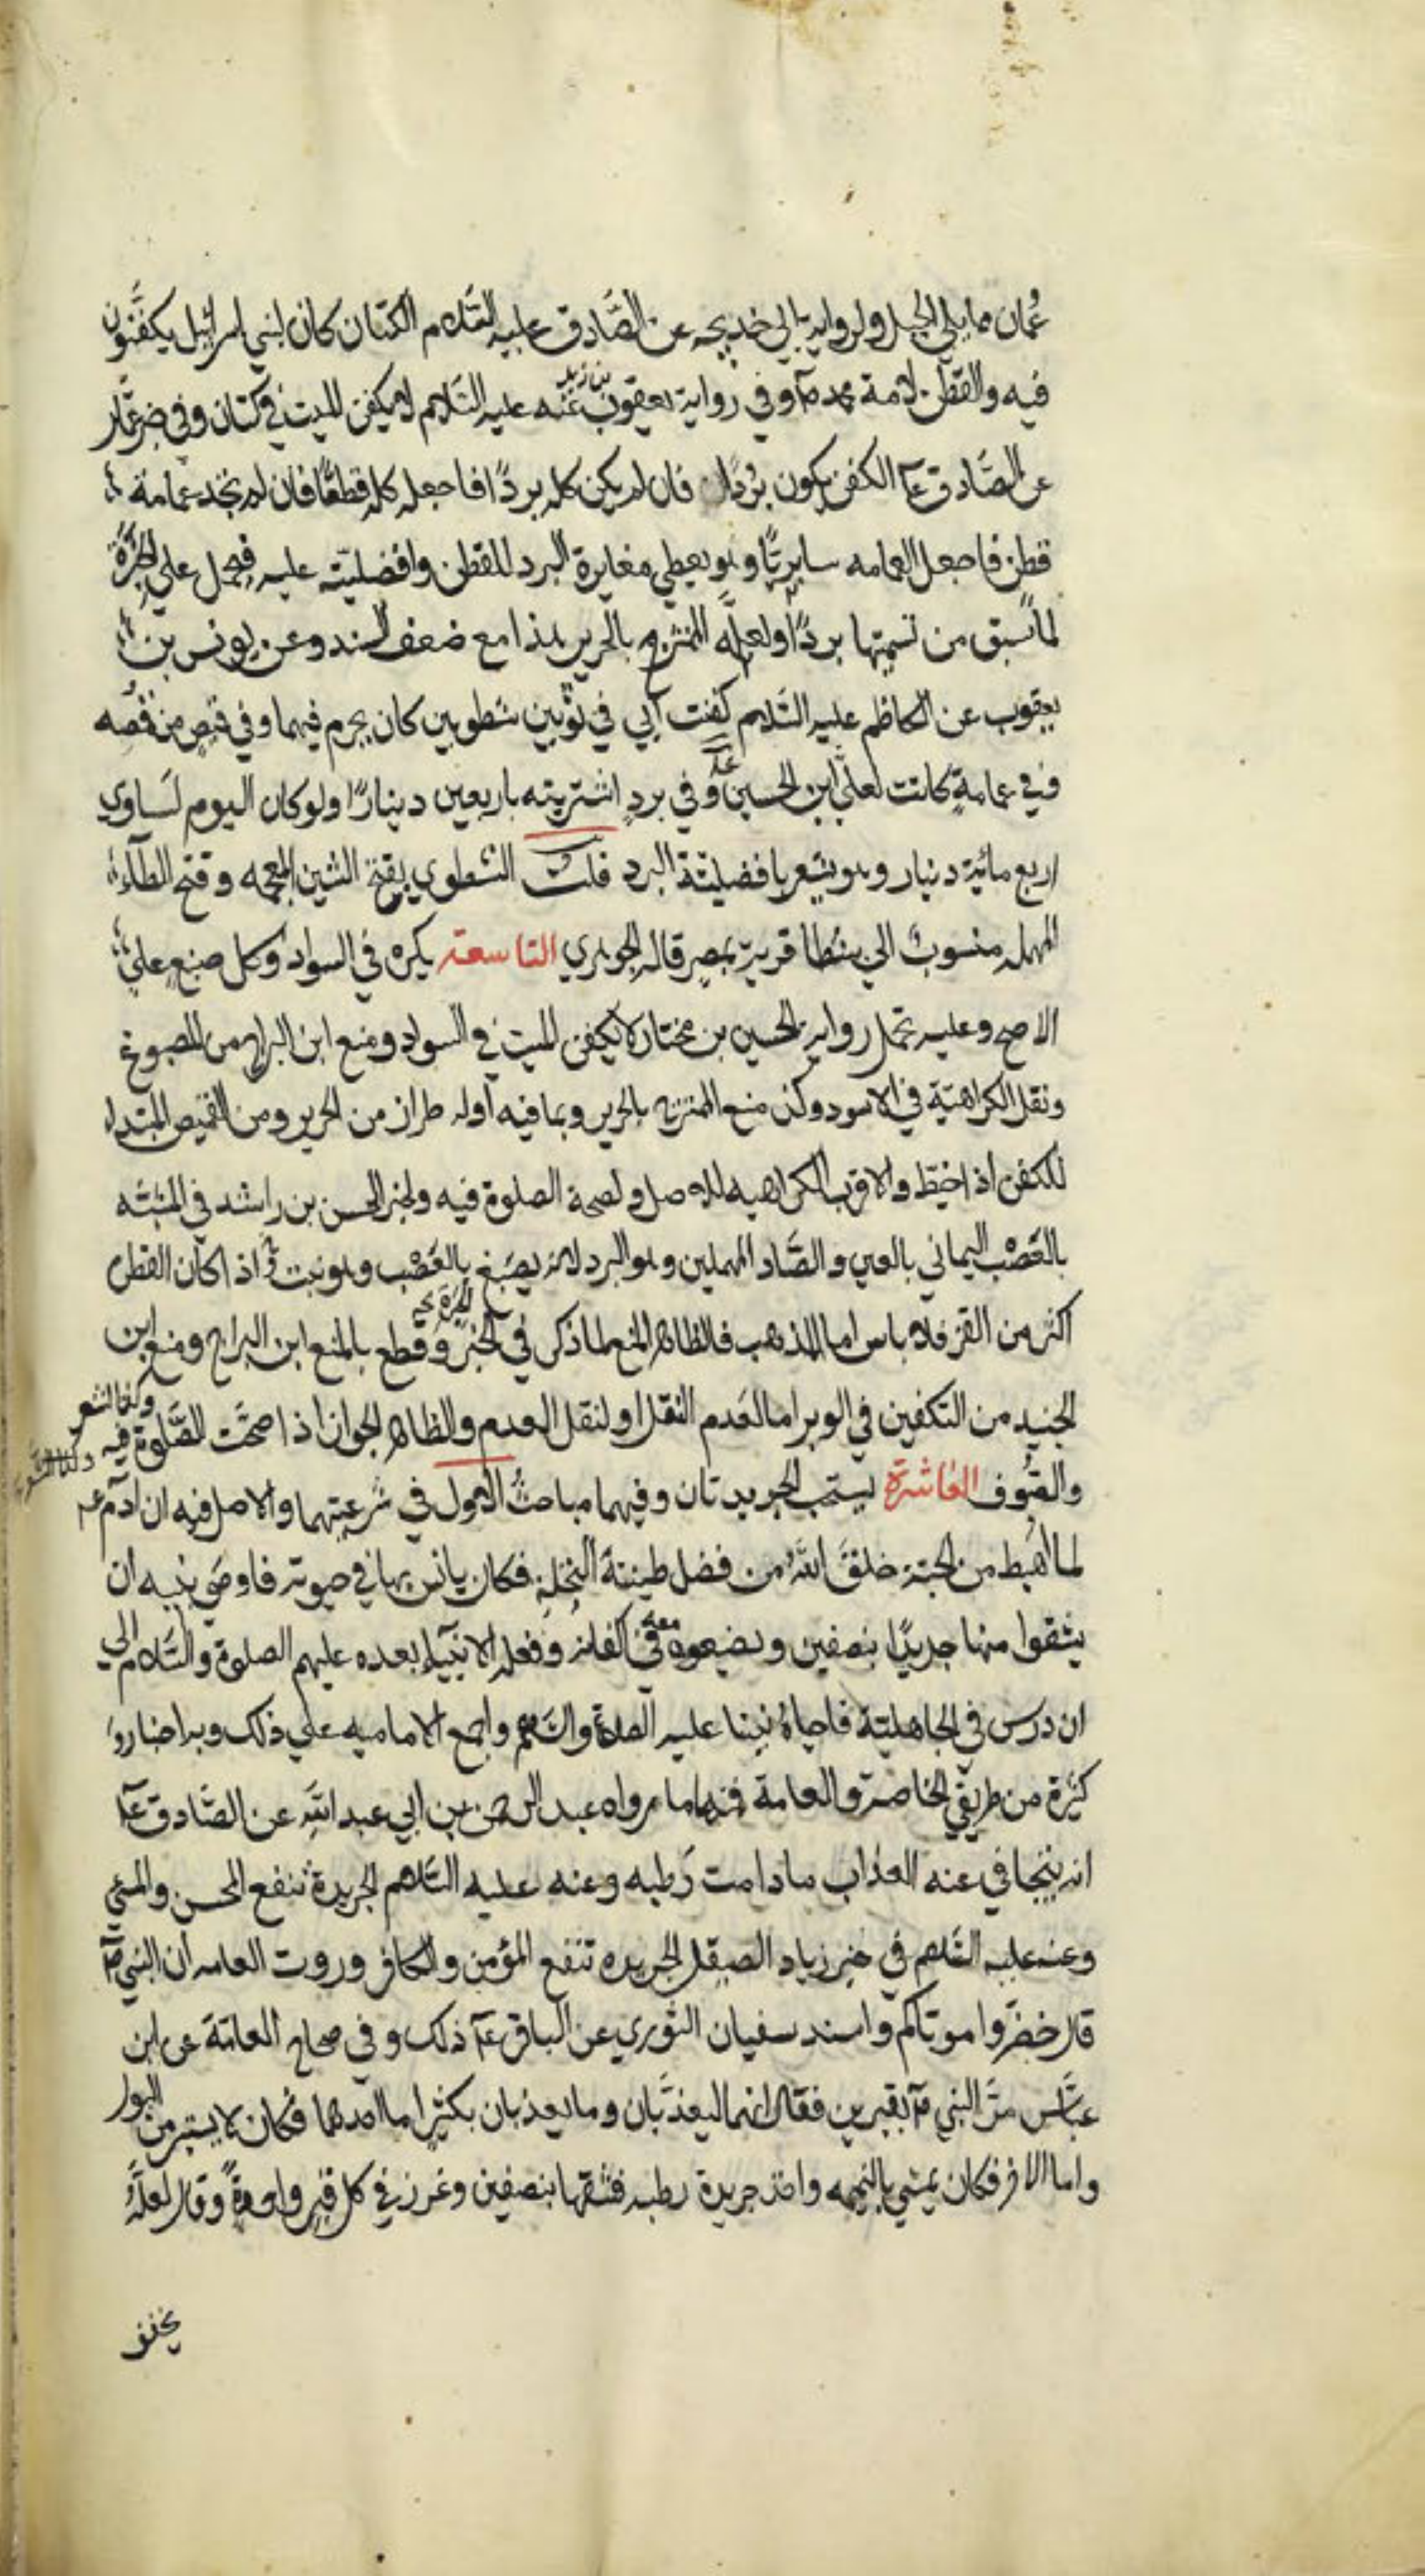 عُمان مما يلي الجبل ولرواية ابي خديجه عن الصَّادق عليه السَّلام الكتان كان لبني اسرائيل يكفّنون
فيه والقطن لامة محمد صآ وفي رواية يعقوب بن زيد عنه عليه السَّلام لا يكفن الميت في كتان وفي خبر عمّار
عن الصَّادق عآ الكفن يكون بردًا فان لم يكن كله بردًا فاجعله كله قطنًا فان لم تجد عمامة
قطن فاجعل العمامه سابريًّا وهو يعطي مغايرة البرد للقطن وافضليته عليه فيحمل علي الحِبَرَة
لما سبق من تسميتها بردًا ولعلَّه الممتزج بالحرير هذا مع ضعف السند وعن يونس بن
يعقوب عن الكاظم عليه السَّلام كفنت ابي في ثوبين شطويين كان يحرم فيهما وفي قميص من قُمُصه
وفي عمامةٍ كانت لعلي ابن الحسين عآ وفي بردٍ اشتريته باربعين دينارًا ولو كان اليوم لسَاوي
اربع مائية دينار وهو يشعر بافضليّة البرد قلت الشطوي بفتح الشين المعجمه وفتح الطآء
المهمله منسوبٌ الي شطا قرية بمصر قاله الجوهري التاسعة يكره في السواد وكل صبغٍ علي
الاصح وعليه تحمل رواية الحسين بن مختار لا يكفن الميت في السواد ومنع ابن البراج من المصبوغ
ونقل الكراهيّة في الاسود وكذا منع الممتزج بالحرير وبما فيه اوله طراز من الحرير ومن القميص المبتدا
للكفن اذا خيّط والاقرب الكراهيه للاصل ولصحة الصلوة فيه ولخبر الحسن بن راشد في المشبّه
بالعَصْب اليماني بالعين والصَّاد المهملين وهو البرد لانه يصبَغ بالعَصْب وهو نبت اذا كان القطن
اكثر من القز فلا باس اما المذهب فالظاهر المنع لما ذكر في الخبر وقطع بالمنع ابن البراج ومنع ابن
الجنيد من التكفين في الوبر اما لعَدم النقل او لنقل العدم والظاهر الجواز اذا صحّت الصَّلوة فيه وكذا الشعر
والصُوف العاشرة يستحب الجريدتان وفيهما مباحثُ الاول في شرعيتهما والاصل فيه ان ادمَ عم
لما اُهبط من الجنة خلقَ اللهُ من فضل طينتة النخلةِ فكان يانس بها في حيوته فاوصَي بنيه ان
يشقوا منها جريدًا بنصفين ويضيعوه معه في اكفانه وفعله الانبيآء بعده عليهم الصلوة والسَّلام الي
ان درس في الجاهليّة فاحياهُ نبينا عليه الصلاة والسَّلام واجمع الاماميه علي ذلك وبه اخبارٌ
كثيرة من طريقي الخاصة والعامة فمنها ما رواه عبد الرحمن بن ابي عبد الله عن الصَّادق عآ
انه يتجافي عنه العذاب ما دامت رَطبه وعنه عليه السَّلام الجريدة تنفع المحسن والمسيّ
وعنه عليه السَّلام في خبر زياد الصيقل الجريده تنفع المؤمن والكافر وروت العامه ان النبي صآ
قال خضِّروا موتاكم واسند سفيان الثوري عن الباقر عآ ذلك وفي صحاح العامّة عن ابن
عبَّاس مرَّ النبي صآ بقبرين فقال انهما ليعذّبان وما يعذبان بكثير اما احدهما فكان لا يستبر من البول
واما الاخر فكان يمشي بالنميمه واخذ جريدة رطبه فشقها بنصفين وغرز في كل قبرٍ واحدةً وقال لعلَّه
يخفف